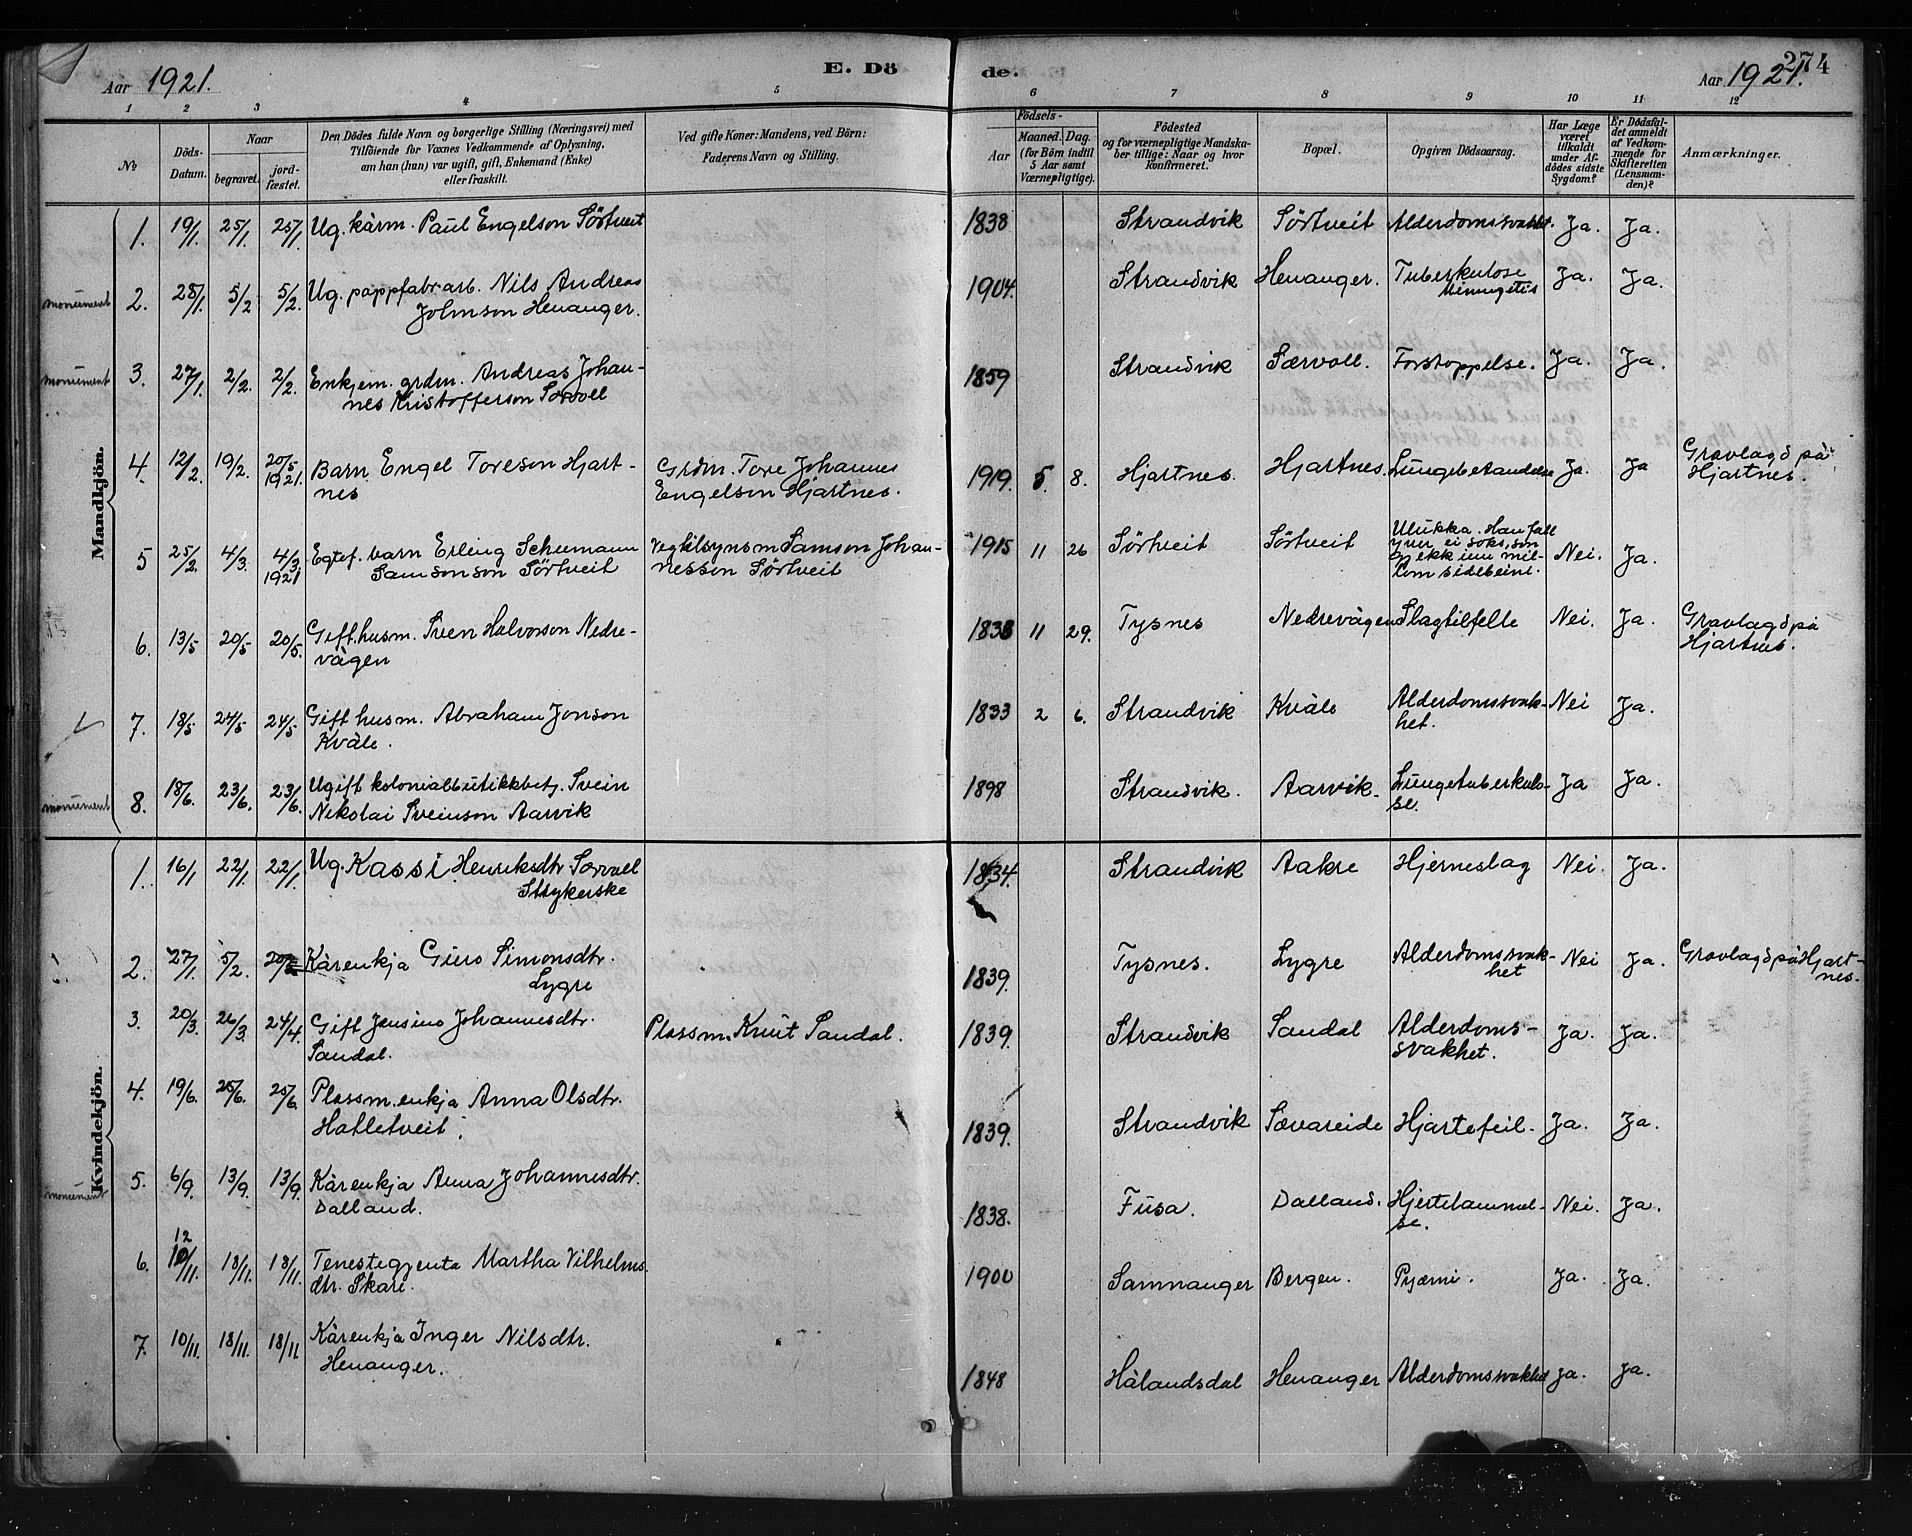 Aar 1921.
E. Dö
de.
Aar 1921.
274
1 2 3 4 5 6 7 8 9 10 11 12
№
Döds-
Datum.
Naar
begravet.
jord-
fæstet.
Den Dödes fulde Navn og borgerlige Stilling (Næringsvei) med
Tilföiende for Voxnes Vedkommende af Oplysning,
om han (hun) var ugift, gift, Enkemand (Enke)
eller fraskilt.
Ved gifte Koner: Mandens, ved Börn:
Faderens Navn og Stilling.
Födsels-
Aar
Maaned. Dag.
(for Börn indtil
5 Aar samt
Værnepligtige).
Födested
og for værnepligtige Mandska-
ber tillige: Naar og hvor
konfirmeret.
Bopæl.
Opgiven Dödsaarsag.
Har Læge
været
tilkaldt
under Af-
dödes sidste
Sygdom?
Er Dödsfal-
det anmeldt
af Vedkom-
mende for
Skifteretten
(Lensman-
den)?
Anmærkninger.
Mandkjön.
1. 19/1 25/1 25/1 Ug. kårm. Paul Engelson Sörtveit 1838 Strandvik Sörtveit Alderdomssvakhet. Ja. Ja.
monument 2. 28/1 5/2 5/2. Ug. pappfabr.arb. Nils Andreas 1904. Strandvik Henanger. Tuberkulose Ja. Ja.
Johnson Henanger. Meningetis
monument 3. 27/1. 2/2. 2/2. Enkjem. grdm. Andreas Johan- 1859 Strandvik Særvoll. Forstoppelse. Ja. Ja.
nes Kristofferson Særvoll
4. 12/2. 19/2. 20/5 1921. Barn Engel Toreson Hjart- Grdm. Tore Johannes 1919. 5. 8. Hjartnes. Hjartnes. Lungebetændelse Ja. Ja Gravlagd på
nes Engelson Hjartnes. Hjartnes.
5 25/2. 4/3. 4/3. 1921 Egtef. barn Erling Schumann Vegtilsynsm Samson Johan- 1915 11 26 Sörtveit Sörtveit Ulukka. Han fall Nei. Ja.
Samsonson Sörtveit nesson Sörtveit yver ei soks, son
gjekk inn mil-
lom sidebeini.
6. 13/5 20/5 20/5. Gift husm. Sven Halvorson Nedre- 1838 11 29. Tysnes Nedrevågen Slagtilfelle Nei. Ja. Gravlagd på
vågen Hjartnes.
7. 18/5 24/5 24/5 Gift husm. Abraham Jonson 1833 2 6. Strandvik Kvåle Alderdomssvak- Nei Ja.
Kvåle. het.
monument 8. 18/6. 23/6. 23/6. Ugift kolonialbutikkbetj. Svein 1898 Strandvik. Aarvik. Lungetuberkulo- Ja Ja.
Nikolai Sveinson Aarvik se.
Kvindekjön.
1. 16/1 22/1. 22/1. Ug. Kassi Henriksdtr. Særvoll 1834. Strandvik Aakre Hjerneslag Nei. Ja.
Strykerske
2. 27/1. 5/2. 20/5 Kårenkja Guro Simonsdtr. 1839. Tysnes. Lygre Alderdomssvak- Nei Ja. Gravlagd på Hjart-
Lygre het nes.
3. 20/3. 26/3 24/4 Gift Jensine Johannesdtr. Plassm. Knut Sandal. 1839. Strandvik Sandal Alderdoms- Ja. Ja.
Sandal. svakhet.
4. 19/6. 25/6. 25/6 Plassm.enkja Anna Olsdtr. 1839. Strandvik Sævareide Hjartefeil. Ja. Ja.
Hatletveit.
monument 5. 6/9. 13/9. 13/9. Kårenkja Anna Johannesdtr. 1838. Fusa. Dalland. Hjertelammel- Nei. Ja.
Dalland. se.
12
6. 10/11. 18/11. 18/11. Tenestegjenta Martha Vilhelms. 1900 Samnanger Bergen. Pyæmi. Ja. Ja.
dtr. Skåre.
7. 10/11. 18/11. 18/11 Kårenkja Inger Nilsdtr. 1848 Hålandsdal Henanger Alderdomssvakhet Ja. Ja.
Henanger.